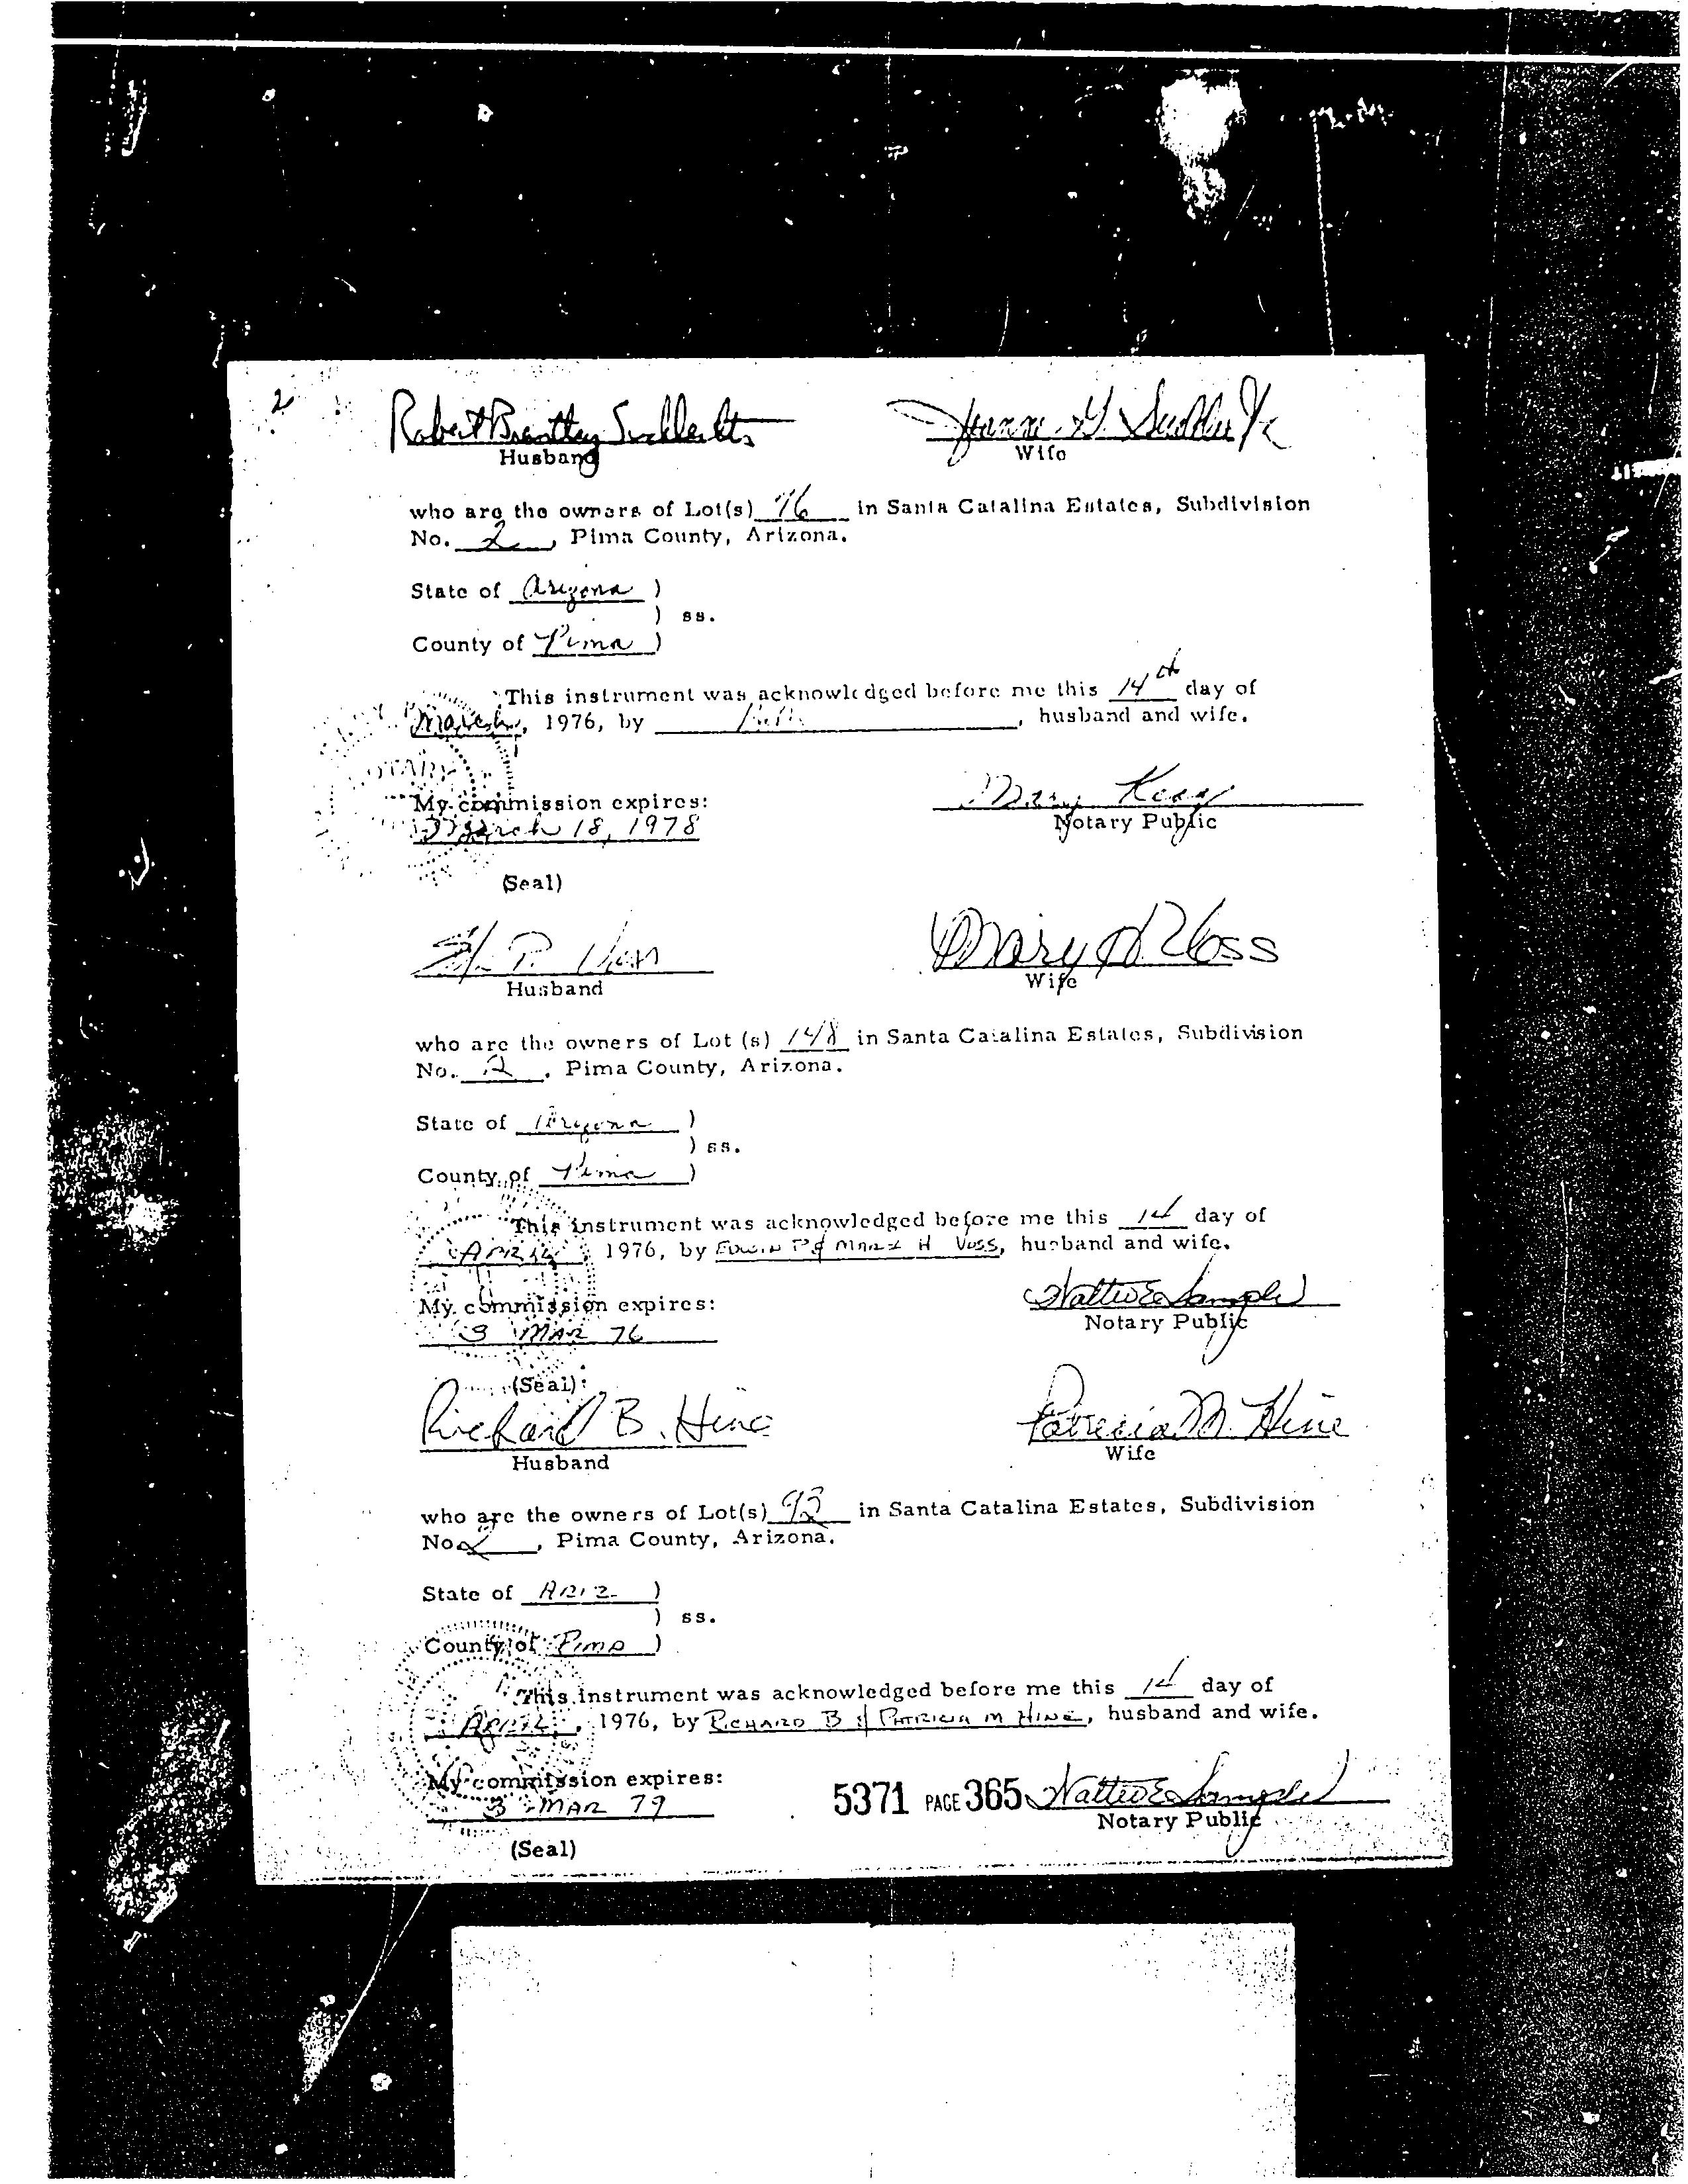 2
Robert Brantley
Husband
Wife
who are the owners of Lot(s) in Santa Catalina Estates, Subdivision
No. 2, Pima County, Arizona.
State of Arizona )
) ss.
County of Pima )
This instrument was acknowledged before me this 14th day of
March, 1976, by , husband and wife.
NOTARY
My commission expires:
March 18, 1978
Mary
Notary Public
(Seal)
Voss
Mary H Voss
Husband
Wife
who are the owners of Lot (s) 148 in Santa Catalina Estates, Subdivision
No. 2, Pima County, Arizona.
State of Arizona )
) ss.
County of Pima )
This instrument was acknowledged before me this 14 day of
APRIL, 1976, by EDWIN P & MARY H VOSS, husband and wife.
My commission expires:
3 MAR 76
Walter E Sample
Notary Public
(Seal)
Richard B. Hine
Patricia M. Hine
Husband
Wife
who are the owners of Lot(s) in Santa Catalina Estates, Subdivision
No. 2, Pima County, Arizona.
State of ARIZ )
) ss.
County of Pima )
This instrument was acknowledged before me this 14 day of
APRIL, 1976, by RICHARD B & PATRICIA M HINE, husband and wife.
My commission expires:
3 MAR 79
5371 PAGE 365 Walter E Sample
Notary Public
(Seal)